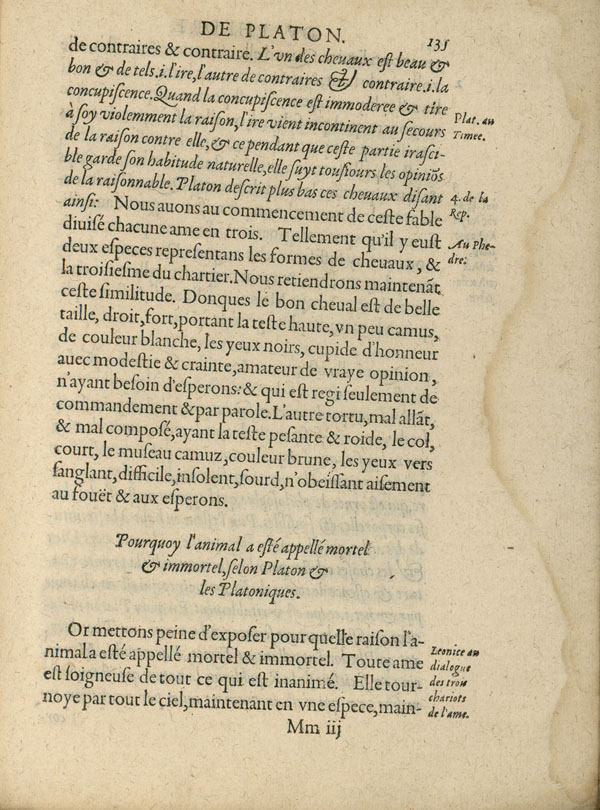 DE PLATON. 135
de contraires & contraire. L'vn des cheuaux est beau &
bon & de tels.i.l'ire, l'autre de contraires & contraire.i.la
concupiscence. Quand la concupiscence est immoderee & tire
à soy violemment la raison, l'ire vient incontinent au secours
de la raison contre elle, & cependant que ceste partie irasci-
ble garde son habitude naturelle, elle suyt tousiours les opiniõs
de la raisonnable. Platon descrit plus bas ces cheuaux disant
ainsi: Nous auons au commencement de ceste fable
diuisé chacune ame en trois. Tellement qu'il y eust
deux especes representans les formes de cheuaux, &
la troisiesme du chartier. Nous retiendrons maintenãt
ceste similitude. Donques le bon cheual est de belle
taille, droit, fort, portant la teste haute, vn peu camus,
de couleur blanche, les yeux noirs, cupide d'honneur
auec modestie & crainte, amateur de vraye opinion,
n'ayant besoin d'esperons: & qui est regi seulement de
commandement & par parole. L'autre tortu, mal allãt,
& mal composé, ayant la teste pesante & roide, le col,
court, le museau camuz, couleur brune, les yeux vers
sanglant, difficile, insolent, sourd, n'obeissant aisement
au fouët & aux esperons.
Plat. au
Timee.
4. de la
Rep.
Au Phe-
dre:
Pourquoy l'animal a esté appellé mortel
& immortel, selon Platon &
les Platoniques.
Or mettons peine d'exposer pour quelle raison l'a-
nimal a esté appellé mortel & immortel. Toute ame
est soigneuse de tout ce qui est inanimé. Elle tour-
noye par tout le ciel, maintenant en vne espece, main-
Leonice au
dialogue
des trois
chariots
de l'ame.
Mm iij